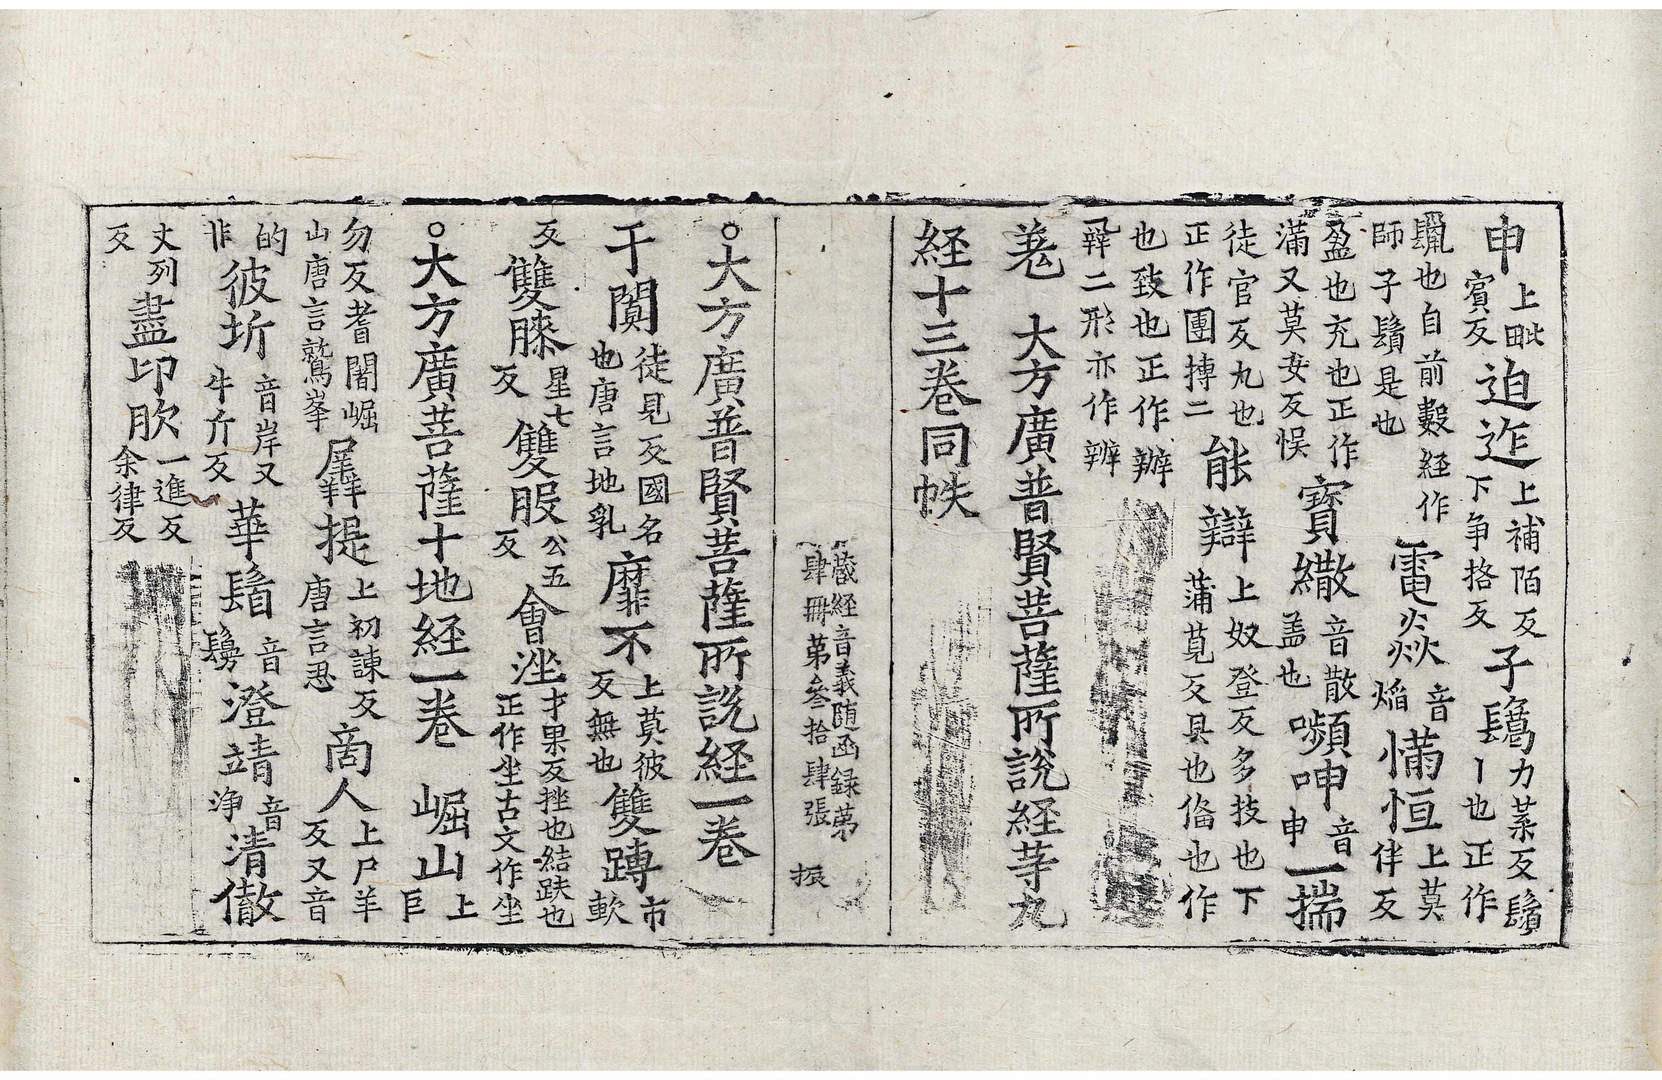 申上毗賔反迫迮上補陌反下争格反子鬗力葉反鬚丨也正作
鬣也自前數経作師子鬚是也雷焱音焔㒼恒上莫伴反
盈也充也正作滿又莫安反悮寳繖音散盖也嚬呻音申一揣
徒官反丸也正作團摶二能辯上奴登反多技也下蒲莧反具也俻也作
也致也正作辦辤二形亦作辦
卷 大方廣普賢菩薩所說経䓁九
経十三卷同帙
藏経音義随函録第肆冊第叄拾肆張 振
○大方廣普賢菩薩所說経一卷
于闐徒見反國名也唐言地乳靡不上莫彼反無也雙蹲市軟
反雙膝星七反雙股公五反會㘴才果反挫也結趺也正作坐古文作㘴
○大方廣菩薩十地経一卷 崛山上巨
勿反耆闍崛山唐言鷲峯羼提上初諫反唐言忍啇人上尸羊反又音
的非彼圻音岸又牛斤反華鬘音鬘澄靖音浄清㣲
丈列反盡印肷一進反余律反